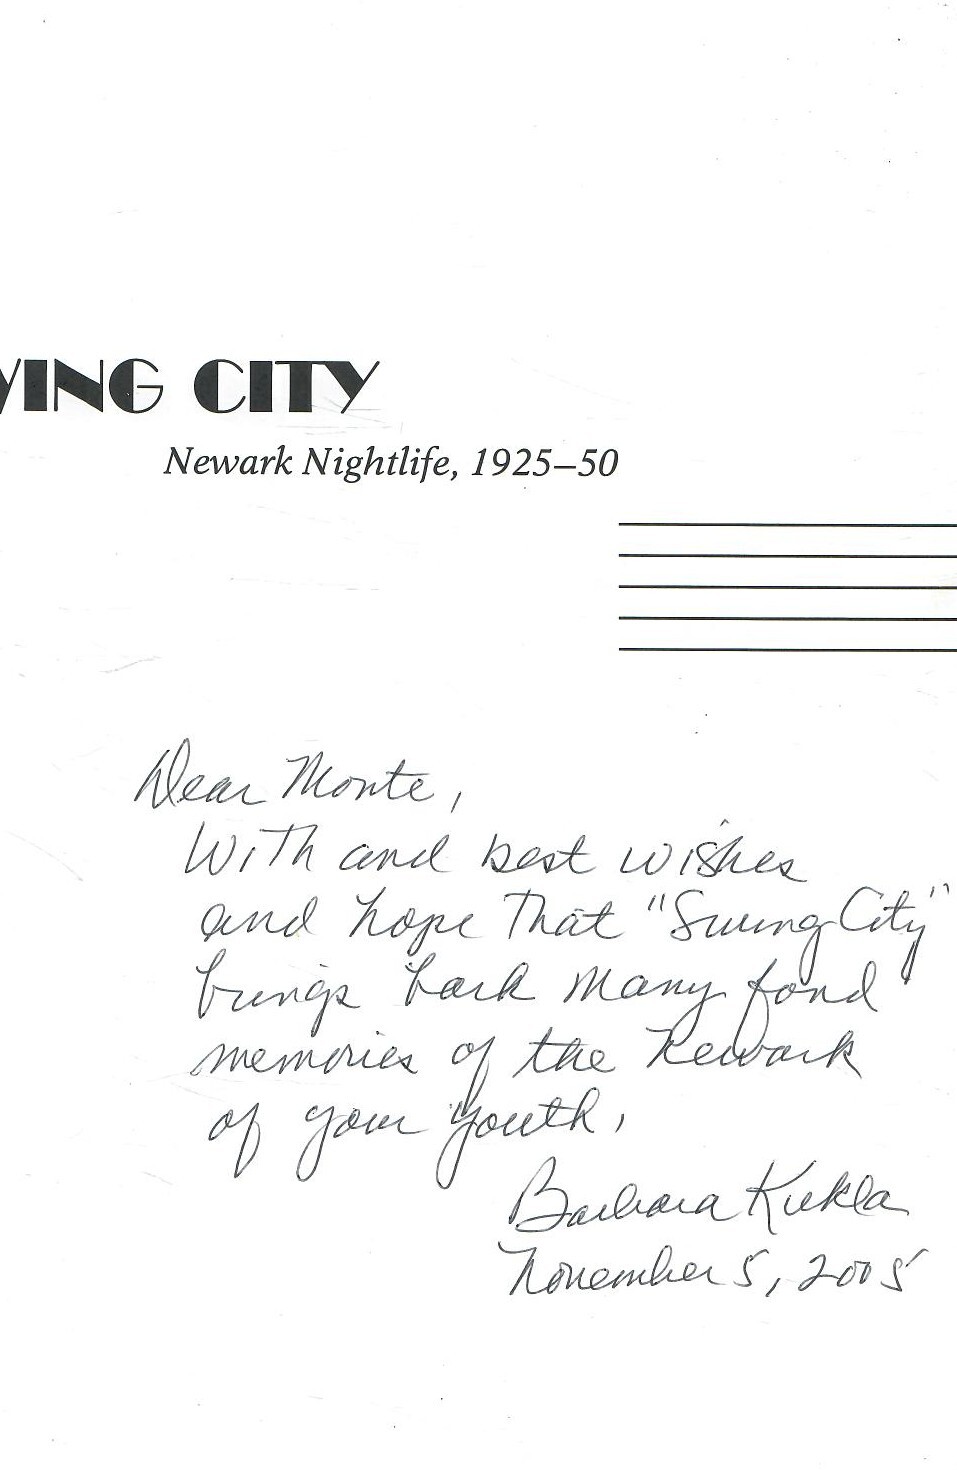 WING CITY
Newark Nightlife, 1925–50
Dear Monte,
With and best wishes
and hope that "Swing City"
brings back many fond
memories of the Newark
of your youth,
Barbara Kukla
November 5, 2005